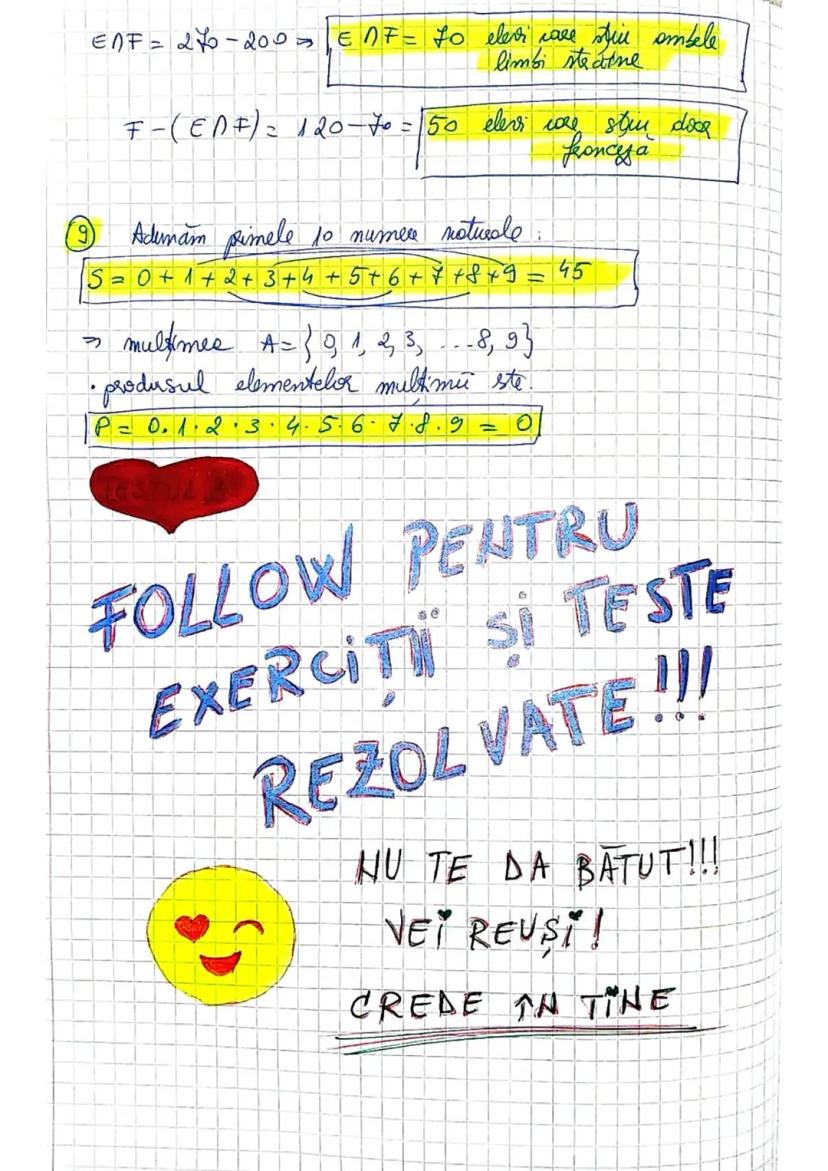 E∩F = 270-200 ⇒ E∩F = 70 elevi care știu ambele
limbi străine
F-(E∩F) = 120-70 = 50 elevi care știu doar
franceză
9 Adunăm primele 10 numere naturale:
S = 0+1+2+3+4+5+6+7+8+9 = 45
⇒ mulțimea A = {0, 1, 2, 3, ...8, 9}
• produsul elementelor mulțimii este:
P = 0·1·2·3·4·5·6·7·8·9 = 0
FOLLOW PENTRU
EXERCIȚII ȘI TESTE
REZOLVATE!!!
NU TE DA BĂTUT!!!
VEI REUȘI!
CREDE ÎN TINE